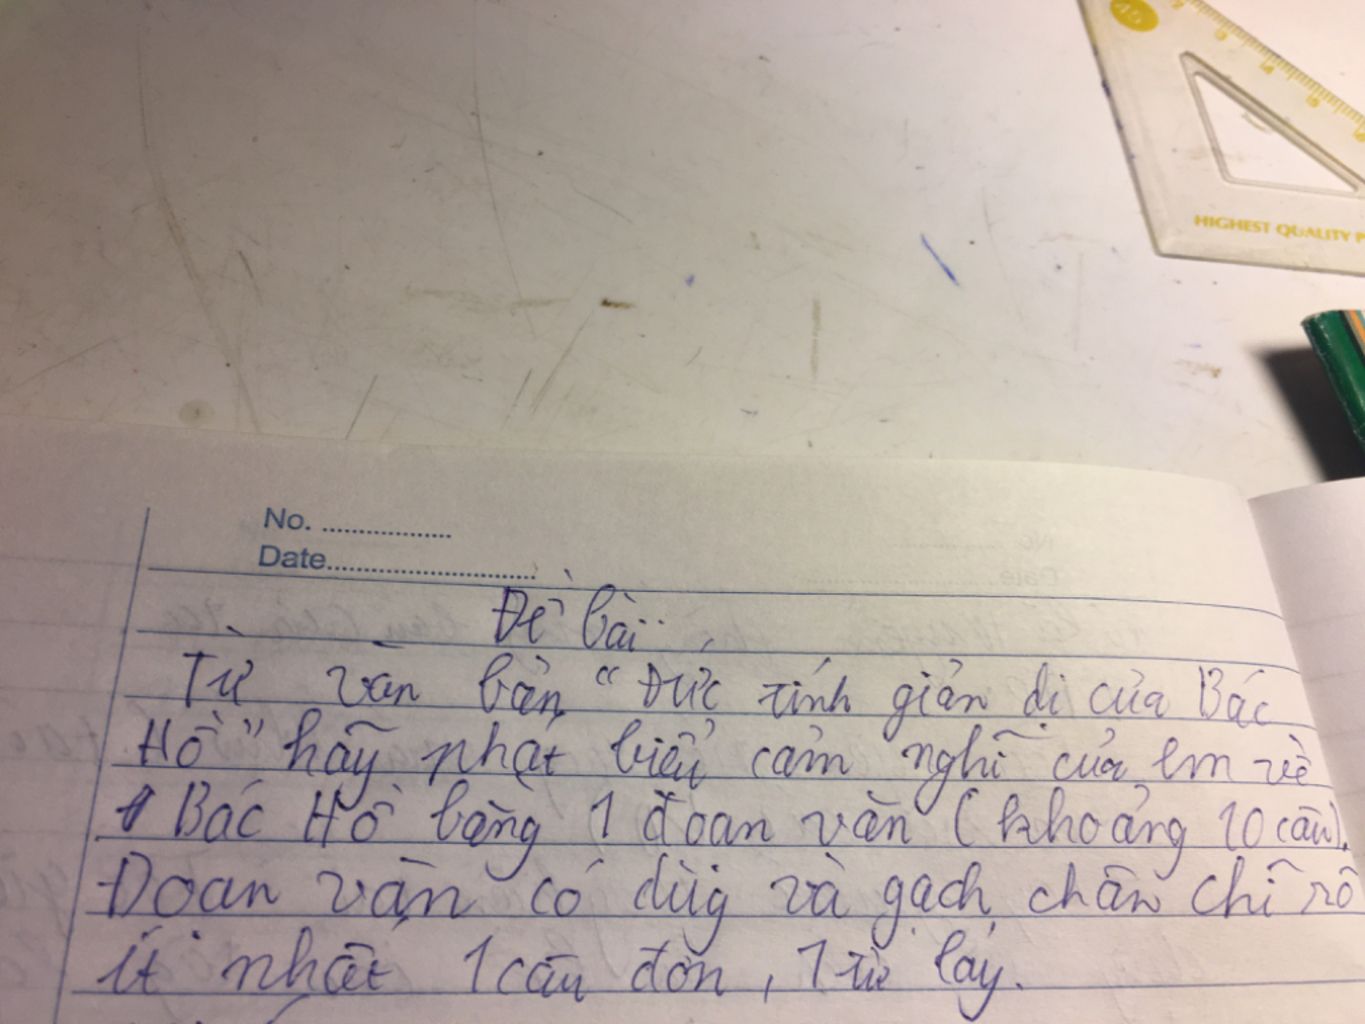 45
HIGHEST QUALITY P
No. ................
Date...........................
Đề bài:
Từ văn bản "Đức tính giản dị của Bác
Hồ" hãy phát biểu cảm nghĩ của em về
Bác Hồ bằng 1 đoạn văn (khoảng 10 câu).
Đoạn văn có dùg và gạch chân chỉ rõ
ít nhất 1 câu đơn, 1 từ láy.